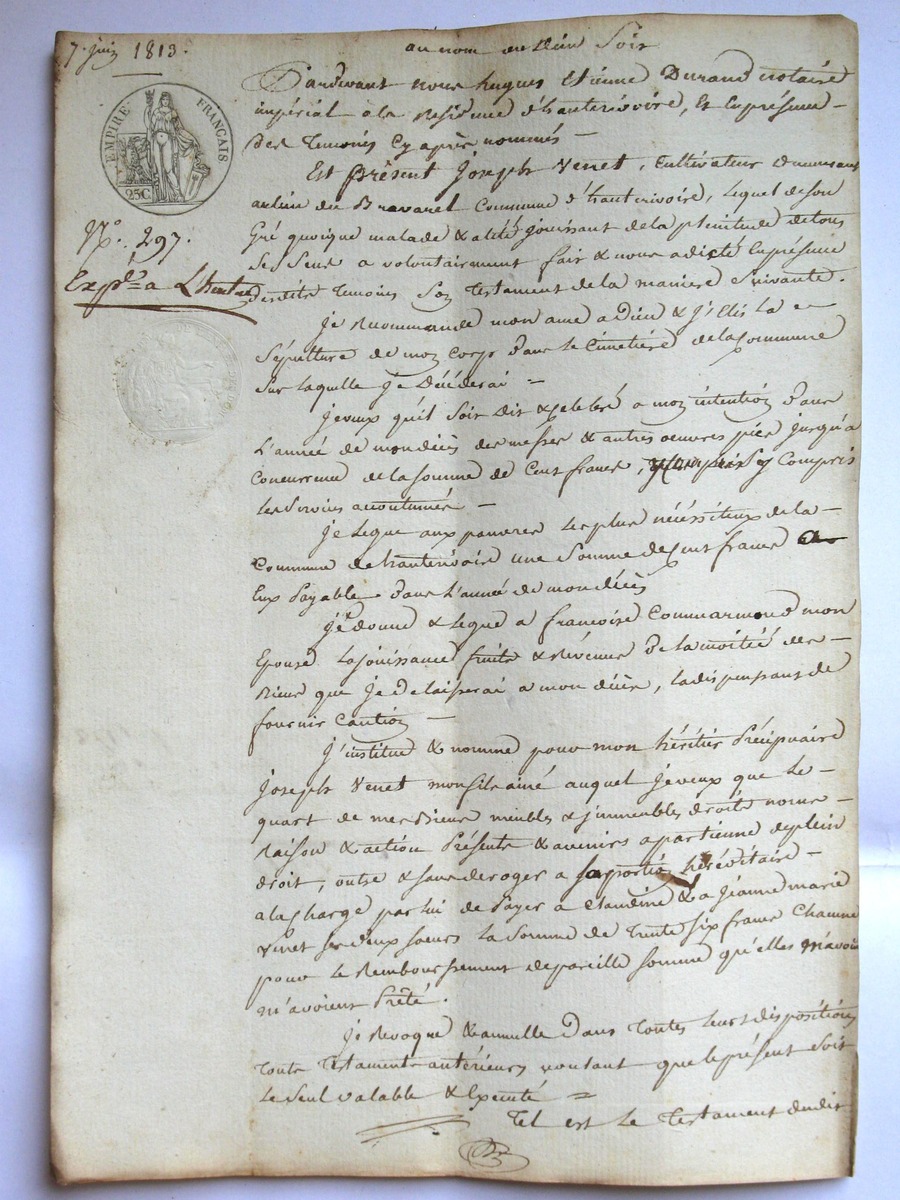 7. juin 1813.
au nom de Dieu Soit
EMPIRE FRANÇAIS
25C
N.º 297.
Expd.é a L'heritier
Pardevant nous hugues Etienne Durand notaire
impérial à la Résidence d'hauterivoire, Et En présence
des Temoins Cy après nommés —
Est Présent Joseph Venet, Cultivateur demeurant
au lieu du Bravaret Commune d'hauterivoire, Lequel de son
Gré quoique malade & alité jouissant de la plenitude de tous
Ses Sens a volontairement fait & nous a dicté En présence
desdits Temoins Son Testament de la maniere Suivante.
je Recommande mon ame a Dieu & j'Elis la
Sépulture de mon Corps dans le Cimetiére de la Commune
Sur laquelle je Décéderai =
je veux qu'il Soit Dit & Celebré a mon intention dans
L'année de mon décès des messes & autres oeuvres pies jusqu'a
Concurrence de la somme de Cent francs, y Compris y Compris
Les Services accoutumés —
je Legue aux pauvres Les plus nécéssiteux de la —
Commune de hauterivoire une Somme de Cent francs a
Eux Payable dans L'année de mon décès
je donne & Legue a françoise Commarmond mon
Epouse La jouissance fruits & Révenus de la moitié des —
Biens que je Délaisserai a mon décès, la dispensant de
fournir Caution —
J'institue & nomme pour mon héritier Précipuaire
Joseph Venet mon fils ainé auquel je veux que le —
quart de mes Biens meubles & immeubles droits noms —
Raison & action Présents & avenirs apartienne de plein
droit, outre & sans deroger a sa portion héréditaire —
a la Charge par lui de Payer a Claudine & a jeanne marie
Venet ses deux soeurs La Somme de Trente Six francs Chacune
pour le Remboursement de pareille somme qu'elles m'avoi
m'avoient Prêté.
je Revoque & annulle dans Toutes Leurs dispositions
Touts Testaments antérieurs voulant que le présent Soit
Le Seul valable & Executé =
Tel est le Testament dudit